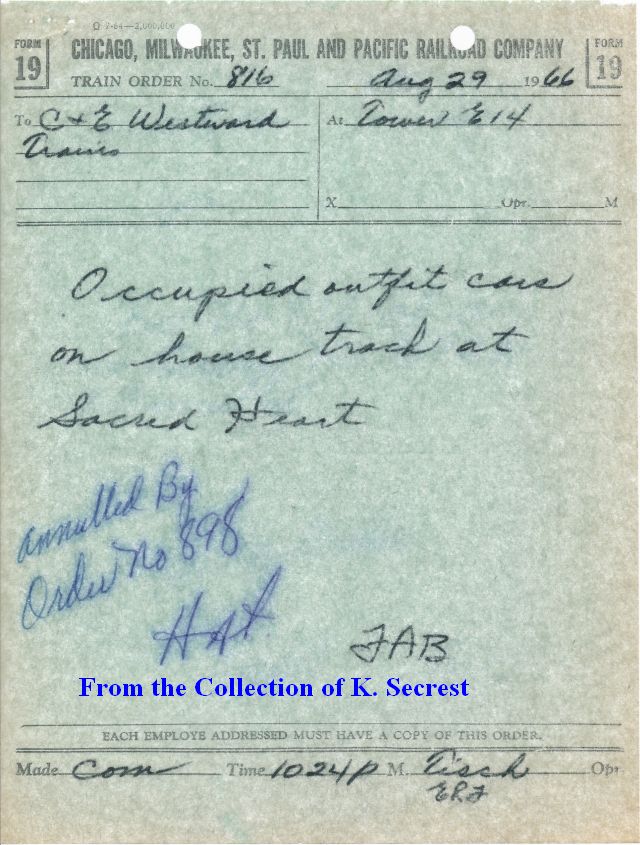 O 7-64—2,000,000
FORM 19 CHICAGO, MILWAUKEE, ST. PAUL AND PACIFIC RAILROAD COMPANY FORM 19
TRAIN ORDER No. 816 Aug 29 1966
To C & E Westward At Tower E14
Trains
X Opr. M
Occupied outfit cars
on house track at
Sacred Heart
annulled By
Order No 898
JAB
From the Collection of K. Secrest
EACH EMPLOYE ADDRESSED MUST HAVE A COPY OF THIS ORDER.
Made Com Time 1024p M. Tisch Opr